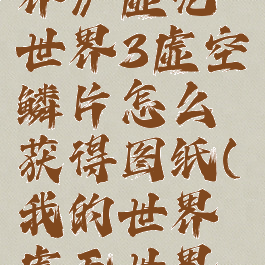 世界3虚空
鳞片怎么
获得图纸(
我的世界